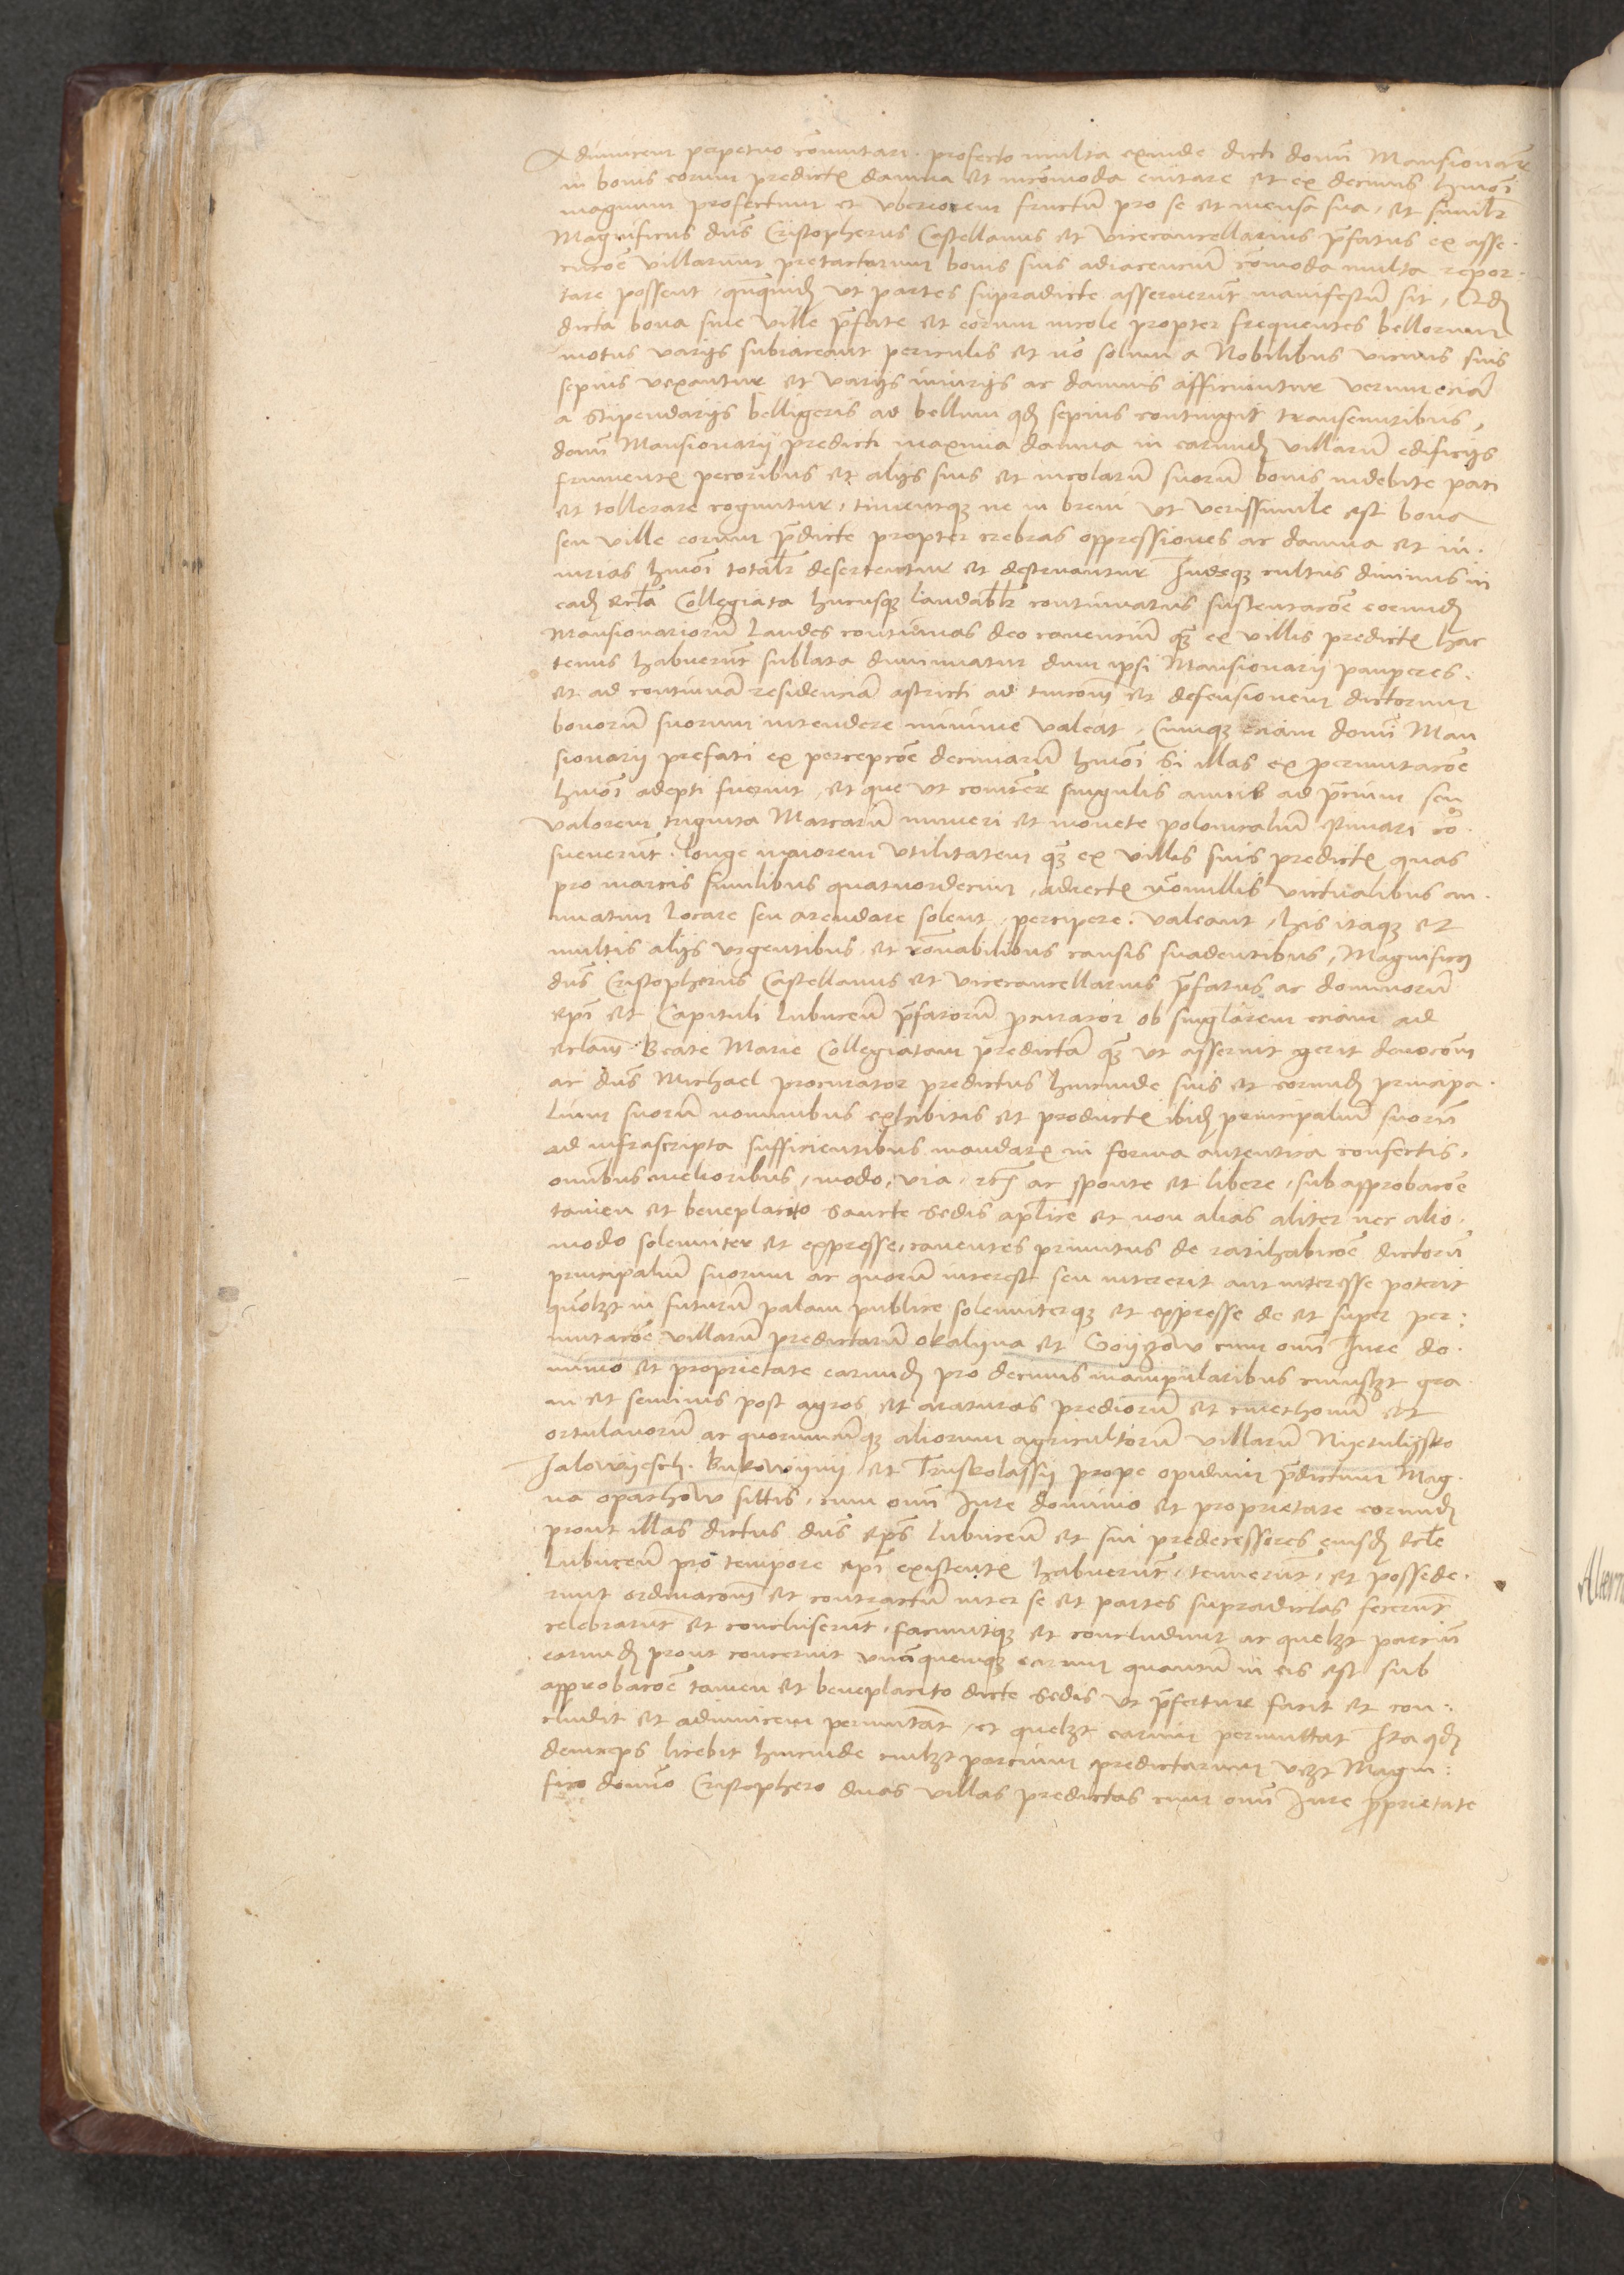 Adinuicem perpetuo comutari. profecto multa exinde dicti domi Mansionarij
in bonis eorum predictis damna et incomoda euitare et ex decimis hmoi
magnum profectum et vberiorem fructu pro se et mensa sua, et similr
Magnificus dns Cristopherus Castellanus et vicecancellarius pfatus ex asse.
cucoe villarum pretactarum bonis suis adiacenciu comoda multa repor.
tare possent, ut partes supradicte asseruerut manifestu sit,
dicta bona siue ville pfate et eorum incole propter frequentes bellorum
motus varijs subiaceant periculis et no solum a Nobilibus vicinis suis
sepius vexantur et varijs iniurijs ac damnis afficiuntur verum ecia
a stipendarijs belligeris ad bellum qd sepius contingit transeuntibus,
domi Mansionarij predicti maxima damna in earund villaru edificijs
frumentis pecoribus et alijs suis et incolaru suoru bonis indebite pati
et tollerare coguntur, timentqz ne in breui ut verissimile est bona
seu ville eorum pdicte propter crebras oppressiones ac damna et in.
iurias hmoi totalr desertentur et destruantur Indeqz cultus diuinus in
ead eccla Collegiata hucusqz laudabilr continuatus sustentacoe eorund
Mansionarioru laudes continuas deo canenciu qua ex villis predictis hac
tenus habuerut sublata diminuatur dum ipsi Mansionarij pauperes.
et ad continua residencia astricti ad tuicom et defensionem dictorum
bonoru suorum intendere minime valeat, Cumqz eciam domi Man
sionarij prefati ex percepcoe decimaru hmoi si illas ex permutacoe
hmoi adepti fuerint, et que ut comuter singulis annis ad pcium seu
valorem triginta Marcaru numeri et monete polonicaliu estimari co.
sueuerut. longe maiorem vtilitatem qz ex villis suis predictis quas
pro marcis similibus quatuordecim, adiectis nonullis victualibus an.
nuatim locare seu arendare solent, percipere. valeant, his itaqz et
multis alijs vrgentibus et ronabilibus causis suadentibus, Magnificus
dns Cristopherus Castellanus et vicecancellarius pfatus ac dominoru
epi et Capituli lubuceñ pfatoru pcurator ob singlarem eciam ad
ecclam Beate Marie Collegiatam predicta qua ut asseruit gerit deuocom
ac dns Michael procurator predictus hincinde suis et eorund principa.
lium suoru nominibus exhibitis et productis ibid principaliu suoru
ad infrascripta sufficientibus mandatis in forma autentica confectis,
omibus melioribus, modo, via, ac sponte et libere, sub approbacoe
tamen et beneplacito sancte sedis aplice et non alias aliter nec alio.
modo solemniter et expresse, cauentes primitus de ratihabicoe dictoru
principaliu suorum ac quoru interest seu intererit aut interesse poterit
quolzt in futuru palam publice solemniterqz et expresse de et super per:
mutacoe villaru predictaru okalyna et Goyczow cum omi Iure do.
minio et proprietate earund pro decimis manipularibus cuiuslzt gra.
ni et seminis post agros et araturas predioru et cmethonu et
ortulanoru ac quorumcuqz aliorum agricultoru villaru Nyetulysko
Jalowyesch. Bukowyny, et Truskolassy prope opidum pdictum Mag.
na opathow sittis, cum omi Iure dominio et proprietate eorund
prout illas dictus dns eps lubuceñ et sui predecessores eiusd eccle
lubuceñ pro tempore epi existentes habuerut, tenuerut, et possede.
runt ordinacom et contractu inter se et partes supradictas fecerut
celebrarut et concluserut, faciuntqz et concludunt ac quelzt parciu
earund prout concernit vnaquemqz earum quantu in eis est sub
approbacoe tamen et beneplacito dicte sedis ut pfertur facit et con:
cludit et adinuicem permutat, et quelzt earum permuttat Ita qd
deinceps licebit hincinde cuilzt parcium predictarum vlzt Magni:
fico domino Cristophero duas villas predictas cum omi Iure pprietate